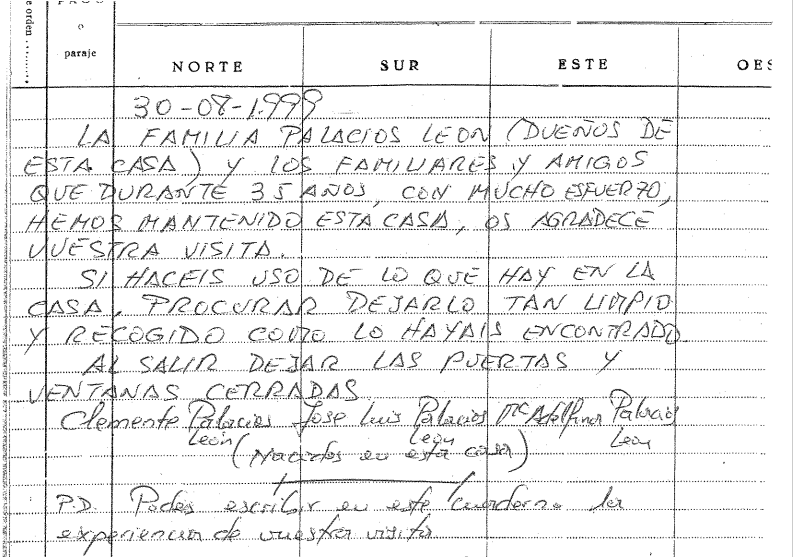 o
paraje
NORTE SUR ESTE OES
30-08-1999
LA FAMILIA PALACIOS LEON (DUEÑOS DE
ESTA CASA) Y LOS FAMILIARES Y AMIGOS
QUE DURANTE 35 AÑOS, CON MUCHO ESFUERZO,
HEMOS MANTENIDO ESTA CASA, OS AGRADECE
VUESTRA VISITA.
SI HACEIS USO DE LO QUE HAY EN LA
CASA, PROCURAR DEJARLO TAN LIMPIO
Y RECOGIDO COMO LO HAYAIS ENCONTRADO.
AL SALIR DEJAR LAS PUERTAS Y
VENTANAS CERRADAS
Clemente Palacios Jose Luis Palacios Mª Adelfina Palacios
León León León
(Nacidos en esta casa)
P.D. Podes escribir en este cuaderno la
experiencia de vuestra visita